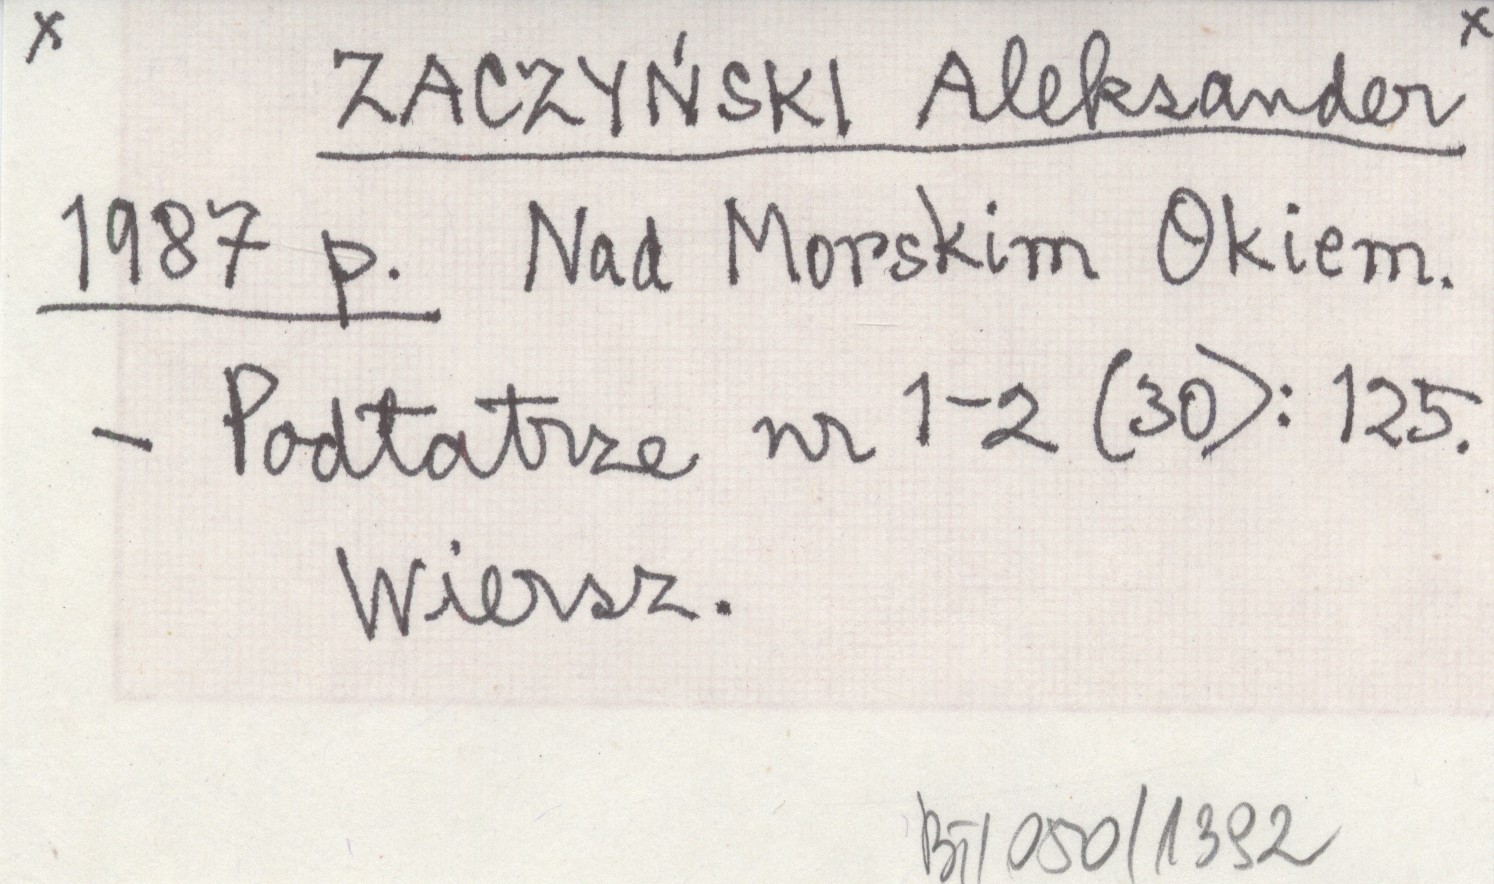 x ZACZYŃSKI Aleksander x
1987 p. Nad Morskim Okiem.
- Podtatrze nr 1-2 (30): 125.
Wiersz.
BT/050/1392